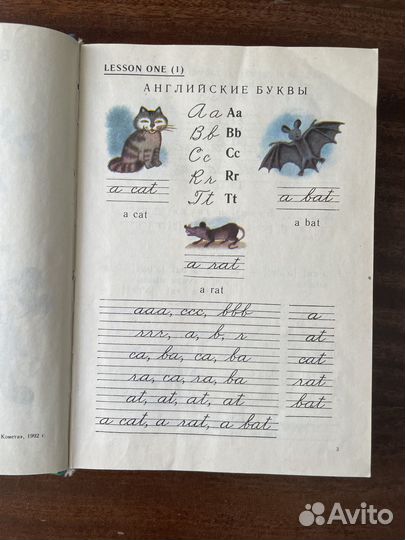 LESSON ONE (1)
АНГЛИЙСКИЕ БУКВЫ
Aa Aa
Bb Bb
Cc Cc
Rr Rr
Tt Tt
a cat
a cat
a bat
a bat
a rat
a rat
aaa, ccc, bbb
rrr, a, b, r
ca, ba, ca, ba
ra, ca, ra, ba
at, at, at, at
a cat, a rat, a bat
a
at
cat
rat
bat
Комета», 1992 г.
3
Avito